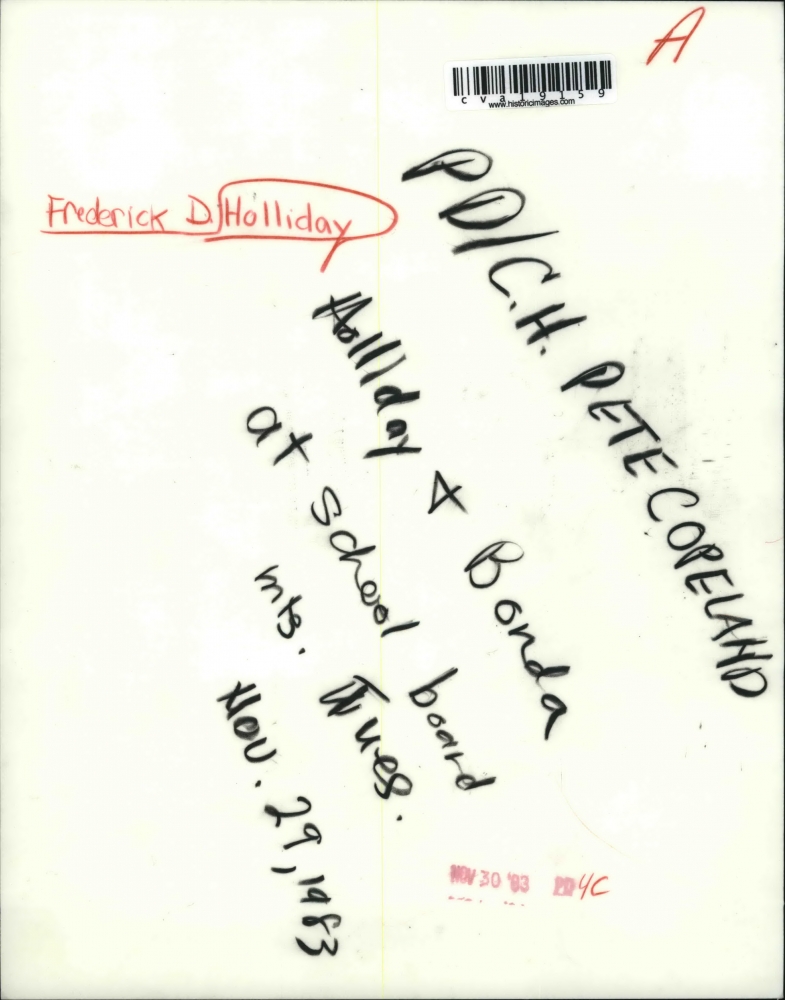 A
cva19159
www.historicimages.com
Frederick D. Holliday
PD/C.H. PETE COPELAND
Holliday & Bonda
at school board
mtg. Tues.
Nov. 29, 1983
NOV 30 '83 PD 4C